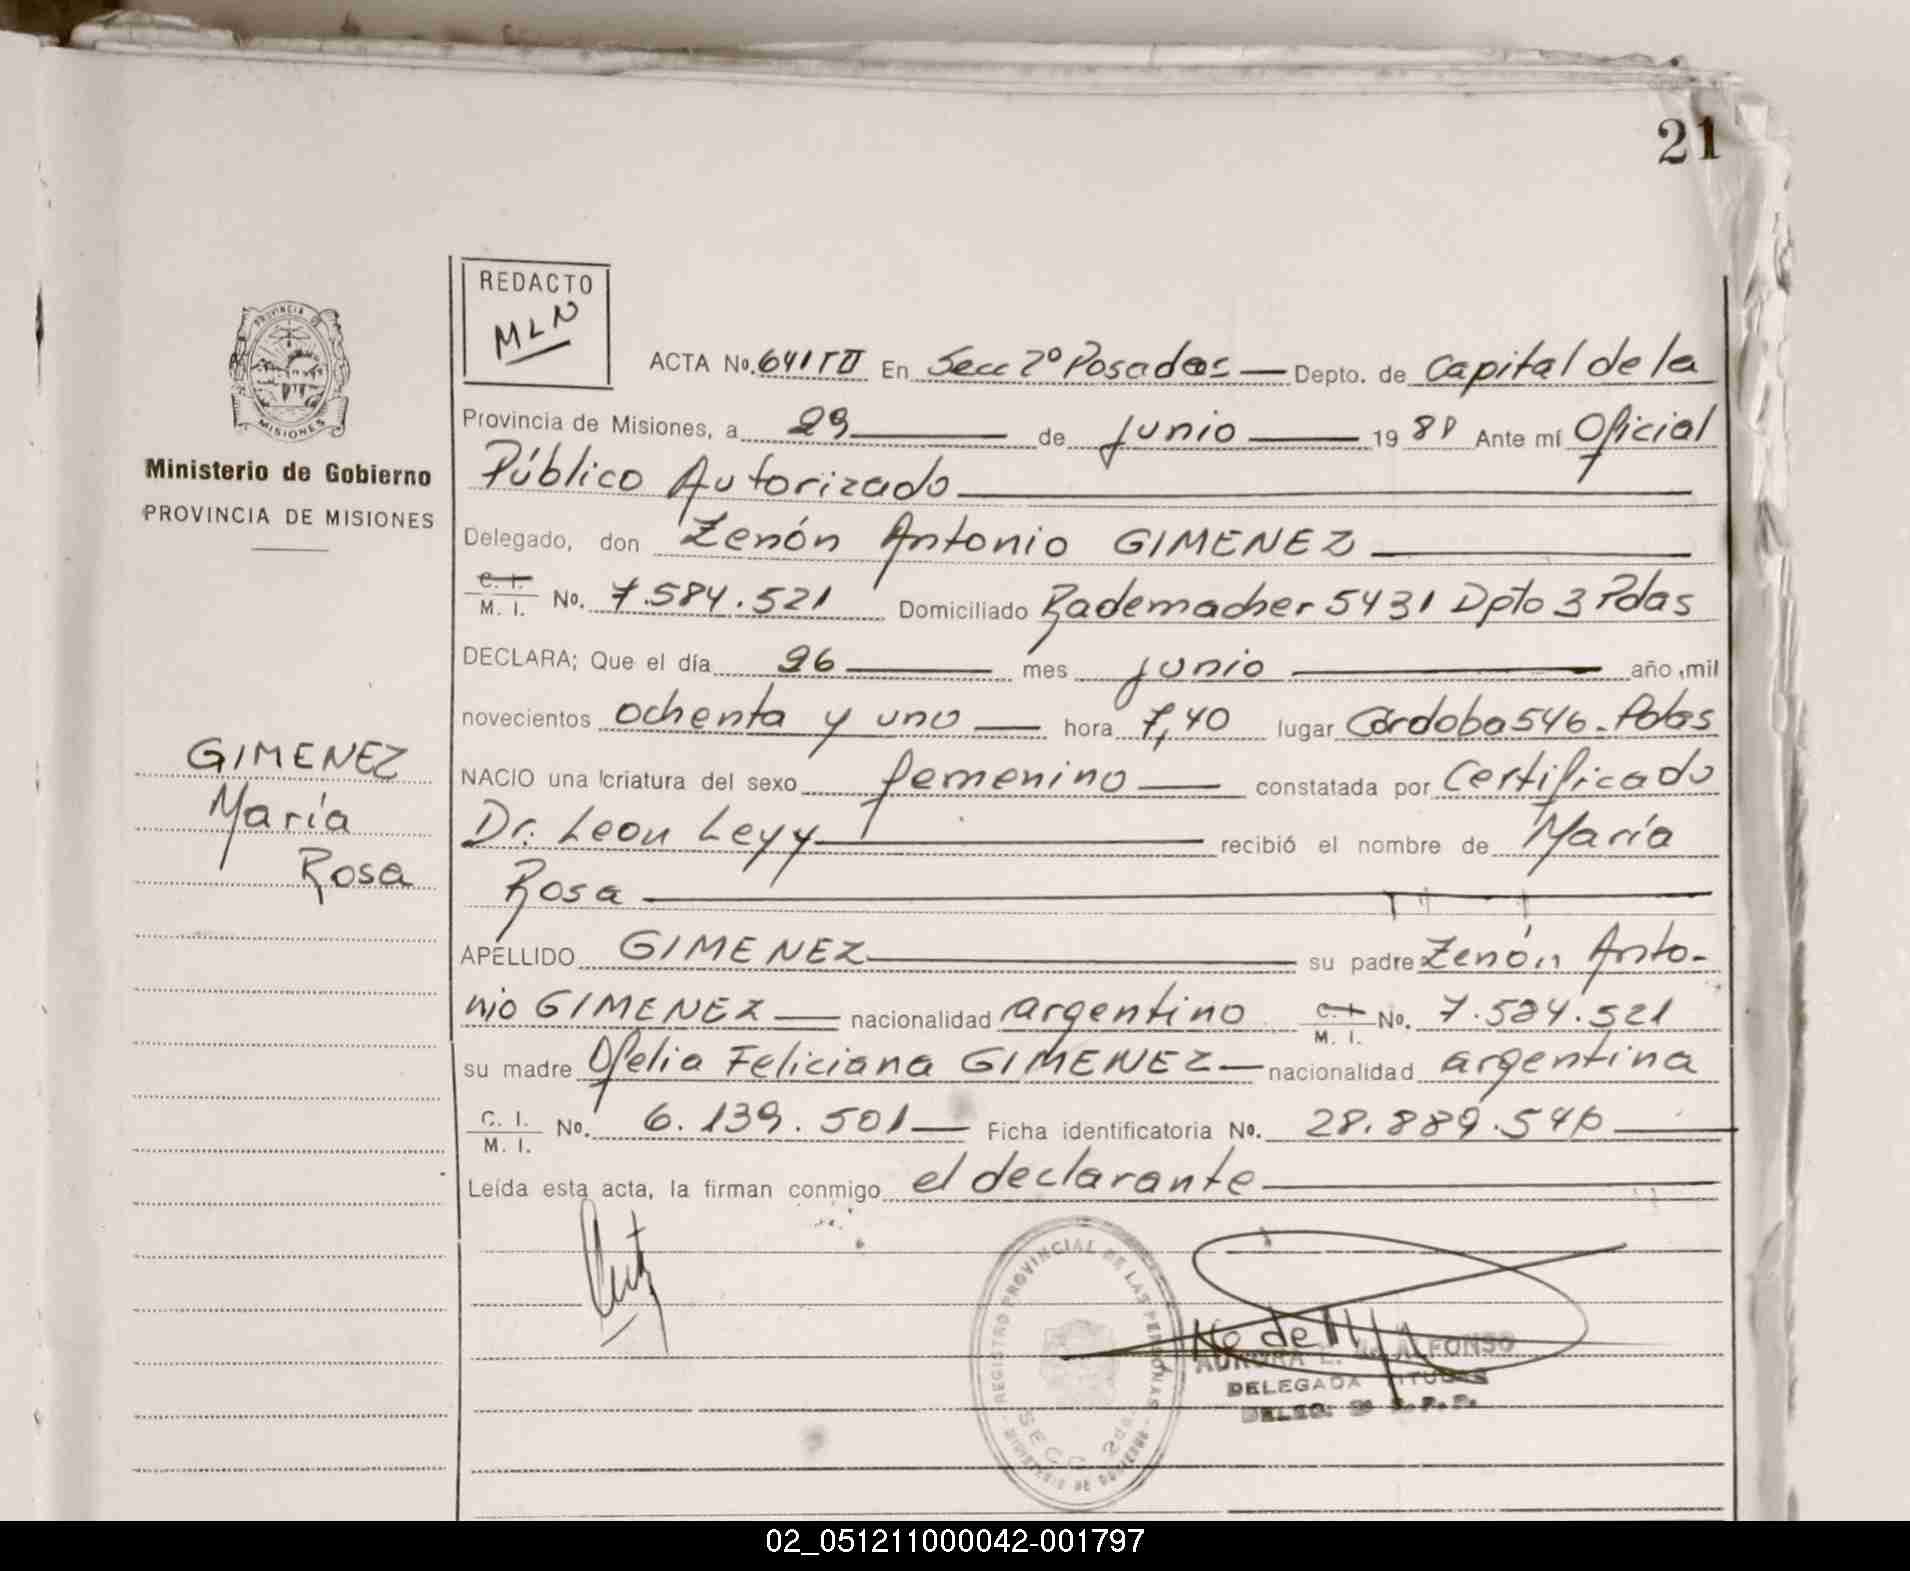 21
REDACTO
MLN
ACTA No. 641 TII En Secc 2º Posadas — Depto. de Capital de la
Provincia de Misiones, a 29 — de junio — 19 81 Ante mí Oficial
Público Autorizado —
Delegado, don Zenón Antonio GIMENEZ —
C. I. / M. I. No. 7.584.521 Domiciliado Rademacher 5431 Dpto 3 Pdas
DECLARA; Que el día 26 — mes junio — año ,mil
novecientos ochenta y uno — hora 7,40 lugar Córdoba 546 - Pdas
NACIO una criatura del sexo femenino — constatada por Certificado
Dr. Leon Levy — recibió el nombre de María
Rosa —
APELLIDO GIMENEZ — su padre Zenón Anto-
nio GIMENEZ — nacionalidad argentino C. I. / M. I. No. 7.584.521
su madre Ofelia Feliciana GIMENEZ — nacionalidad argentina
C. I. / M. I. No. 6.139.501 — Ficha identificatoria No. 28.889.546 —
Leída esta acta, la firman conmigo el declarante —
PROVINCIA DE
MISIONES
Ministerio de Gobierno
PROVINCIA DE MISIONES
GIMENEZ
María
Rosa
REGISTRO PROVINCIAL DE LAS PERSONAS
SECC 2da.
AURORA E. de ALFONSO
DELEGADA TITULAR
02_051211000042-001797